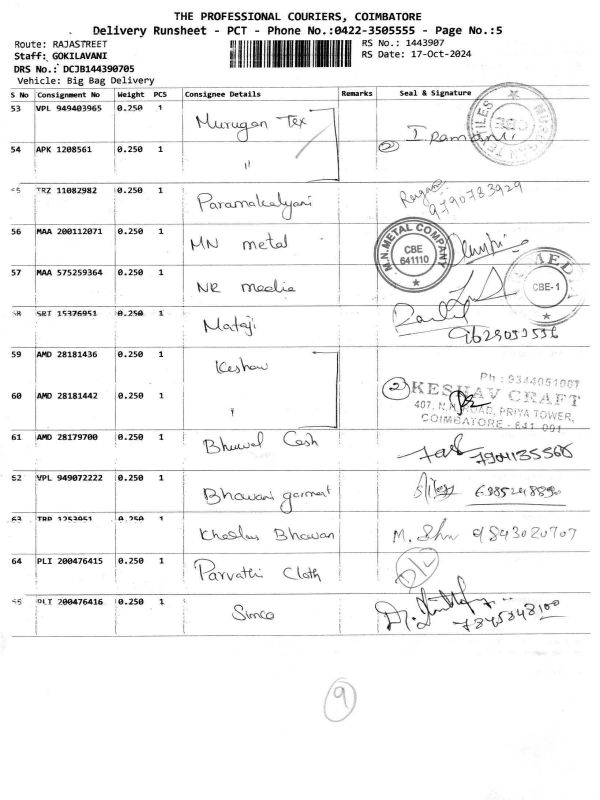 THE PROFESSIONAL COURIERS, COIMBATORE
Delivery Runsheet - PCT - Phone No.:0422-3505555 - Page No.:5
Route: RAJASTREET RS No.: 1443907
Staff: GOKILAVANI RS Date: 17-Oct-2024
DRS No.: DCJB144390705
Vehicle: Big Bag Delivery
S No Consignment No Weight PCS Consignee Details Remarks Seal & Signature
53 VPL 949403965 0.250 1 Murugan Tex
54 APK 1208561 0.250 1 " 2
55 TRZ 11082982 0.250 1 Paramakalyani 9790733929
56 MAA 200112071 0.250 1 MN metal M.N.METAL COMPANY CBE 641110
57 MAA 575259364 0.250 1 NR media CBE-1
58 SRT 15376951 0.250 1 Mataji
59 AMD 28181436 0.250 1 Keshav
60 AMD 28181442 0.250 1 " 2
Ph : 9344051007
KESHAV CRAFT
407, N.H. ROAD, PRIYA TOWER,
COIMBATORE - 641 001
61 AMD 28179700 0.250 1 Cash
62 VPL 949072222 0.250 1 Bhawani garment
63 TRP 1253051 0.250 1 Bhawan 9843020707
64 PLI 200476415 0.250 1 Parvathi Cloth
65 PLI 200476416 0.250 1 Simco 7845848100
9